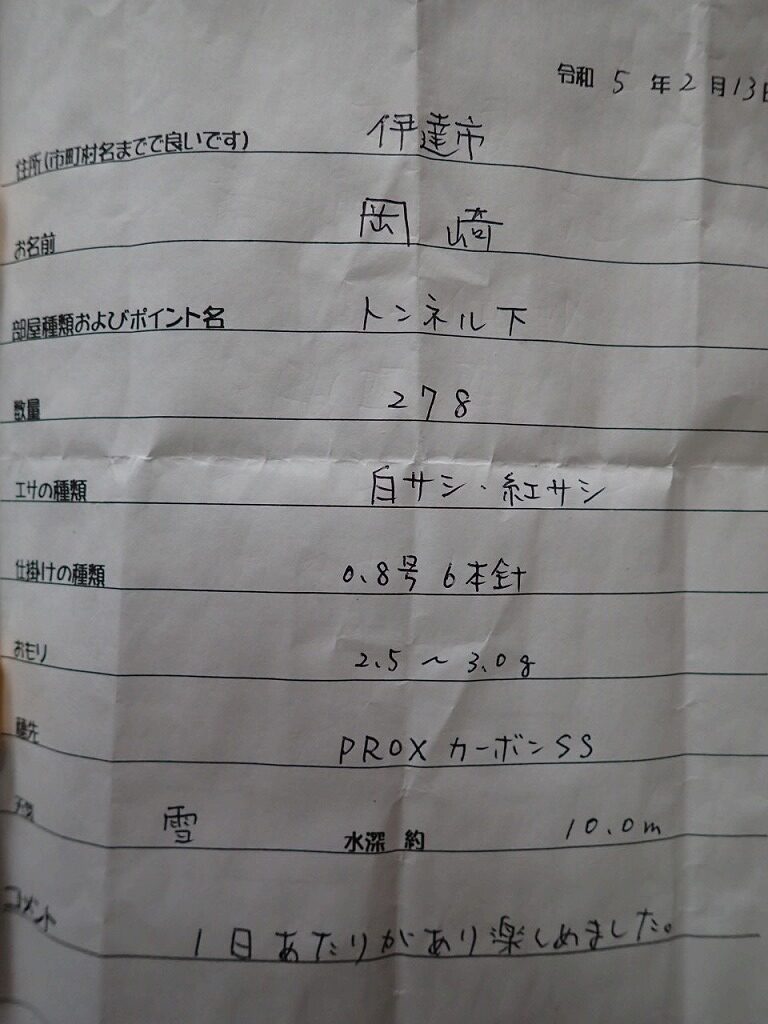 令和 5 年 2 月 13日
住所(市町村名までで良いです) 伊達市
お名前 岡﨑
部屋種類およびポイント名 トンネル下
数量 278
エサの種類 白サシ・紅サシ
仕掛けの種類 0.8号 6本針
おもり 2.5〜3.0g
穂先 PROX カーボンSS
天気 雪 水深 約 10.0m
コメント
1日あたりがあり楽しめました。